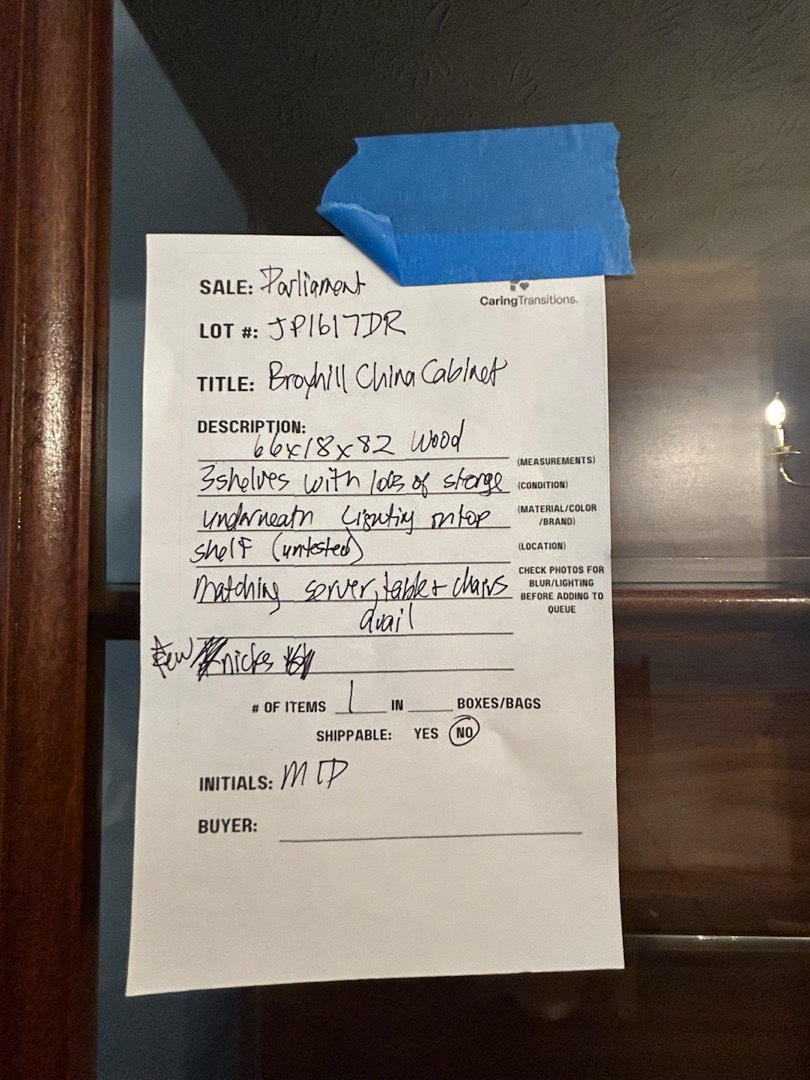 SALE: Parliament
CaringTransitions.
LOT #: JP1617DR
TITLE: Broyhill China Cabinet
DESCRIPTION:
66x18x82 Wood
(MEASUREMENTS)
3 shelves with lots of storge
(CONDITION)
underneath Lighting on top
(MATERIAL/COLOR
/BRAND)
shelf (untested)
(LOCATION)
Matching server, table + chairs
avail
CHECK PHOTOS FOR
BLUR/LIGHTING
BEFORE ADDING TO
QUEUE
Few nicks
# OF ITEMS 1 IN ____ BOXES/BAGS
SHIPPABLE: YES NO
INITIALS:
BUYER: